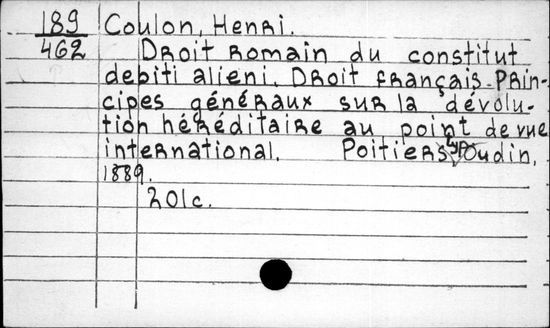 189 Coulon, Henri.
462 Droit Romain du constitut
debiti alieni. Droit français. Prin-
cipes généraux sur la dévolu-
tion héréditaire au point de vue
international. Poitiers, Oudin,
1889.
201c.